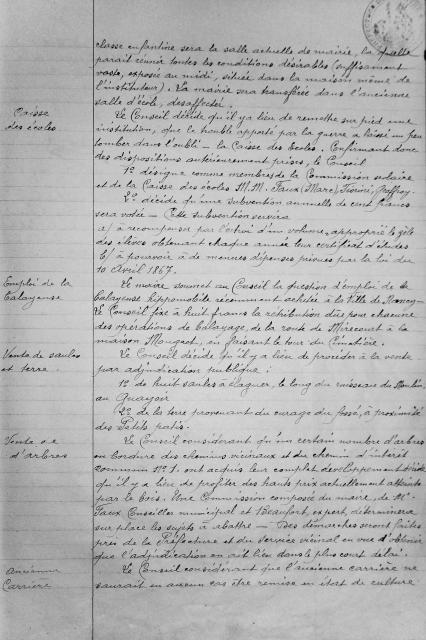 classe enfantine sera la salle actuelle de mairie, la salle
paraît réunir toutes les conditions désirables (suffisamment
vaste, exposée au midi, située dans la maison même de
l'instituteur). La mairie sera transférée dans l'ancienne
salle d'école, désaffectée.
Caisse
des écoles
Le Conseil décide qu'il y a lieu de remettre sur pied une
institution, que le trouble apporté par la guerre a laissé un peu
tomber dans l'oubli — la Caisse des Ecoles. Confirmant donc
des dispositions antérieurement prises, le Conseil
1º désigne comme membres de la Commission scolaire
et de la Caisse des écoles M.M. Faux (Marc)
2º décide qu'une subvention annuelle de cent francs
sera votée — Cette subvention servira
a/ à récompenser par l'octroi d'un volume, approprié, le zèle
des élèves obtenant chaque année leur certificat d'études
b/ à pourvoir à de menues dépenses prévues par la loi du
10 Avril 1867.
Emploi de la
balayeuse
Le maire soumet au Conseil la question d'emploi de la
balayeuse hippomobile récemment achetée à la Ville de Nancy —
Le Conseil fixe à huit francs la rétribution due pour chacune
des opérations de balayage, de la route de Mirecourt à la
maison Mougeot, en faisant le tour du Cimetière.
Vente de saules
et terre
Le Conseil décide qu'il y a lieu de procéder à la vente
par adjudication publique :
1º de huit saules à élaguer, le long du ruisseau du Moulin,
au
2º de la terre provenant du curage du fossé, à proximité
des Petits patis.
Vente
d'arbres
Le Conseil considérant qu'un certain nombre d'arbres
en bordure des chemins vicinaux et du chemin d'intérêt
commun Nº 1. ont acquis leur complet développement décide
qu'il y a lieu de profiter des hauts prix actuellement atteints
par le bois. Une Commission composée du maire, de Mr
Faux Conseiller municipal et Beaufort, expert, déterminera
sur place les sujets à abattre — Des démarches seront faites
près de la Préfecture et du service vicinal en vue d'obtenir
que l'adjudication en ait lieu dans le plus court délai.
Ancienne
Carrière
Le Conseil considérant que l'ancienne carrière ne
saurait en aucun cas être remise en état de culture